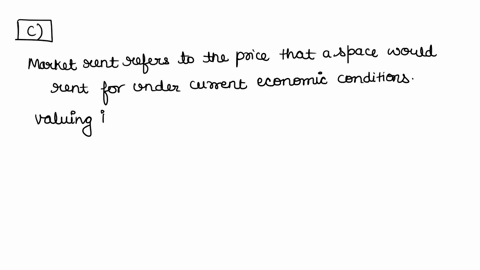 c)
Market rent refers to the price that a space would
rent for under current economic conditions.
valuing i